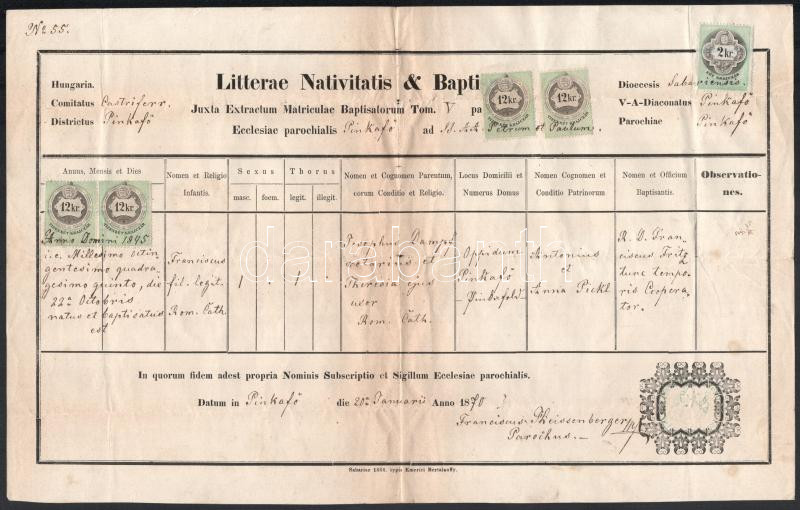 No 55.
Hungaria.
Comitatus Castriferr.
Districtus Pinkafő
Litterae Nativitatis & Bapti
Juxta Extractum Matriculae Baptisatorum Tom. V pa
Ecclesiae parochialis Pinkafő ad SS. A.A. Petrum et Paulum.
12 kr.
12 kr.
2 kr.
Dioecesis Sabariensis.
V-A-Diaconatus Pinkafő
Parochiae Pinkafő
Annus, Mensis et Dies
Nomen et Religio Infantis.
Sexus
masc.
foem.
Thorus
legit.
illegit.
Nomen et Cognomen Parentum, eorum Conditio et Religio.
Locus Domicilii et Numerus Domus
Nomen Cognomen et Conditio Patrinorum
Nomen et Officium Baptisantis.
Observationes.
12 kr.
12 kr.
Anno Domini 1845
i.e. Millesimo octin
gentesimo quadra
gesimo quinto, die
22a Octobris
natus et baptisatus
est
Franciscus
fil. legit.
Rom. Cath.
1
1
Josephus Dampf
et
Theresia ejus
uxor
Rom. Cath.
Oppidum
Pinkafő
Pinkafeld
Antonius
et
Anna Pickl
R. D. Fran-
ciscus Fritz
tunc tempo-
ris Coopera-
tor.
In quorum fidem adest propria Nominis Subscriptio et Sigillum Ecclesiae parochialis.
Datum in Pinkafő die 20a Januarii Anno 1870
Franciscus Weissenberger
Parochus.
Sabariae 1866. typis Emerici Bertalanffy.
darabanth